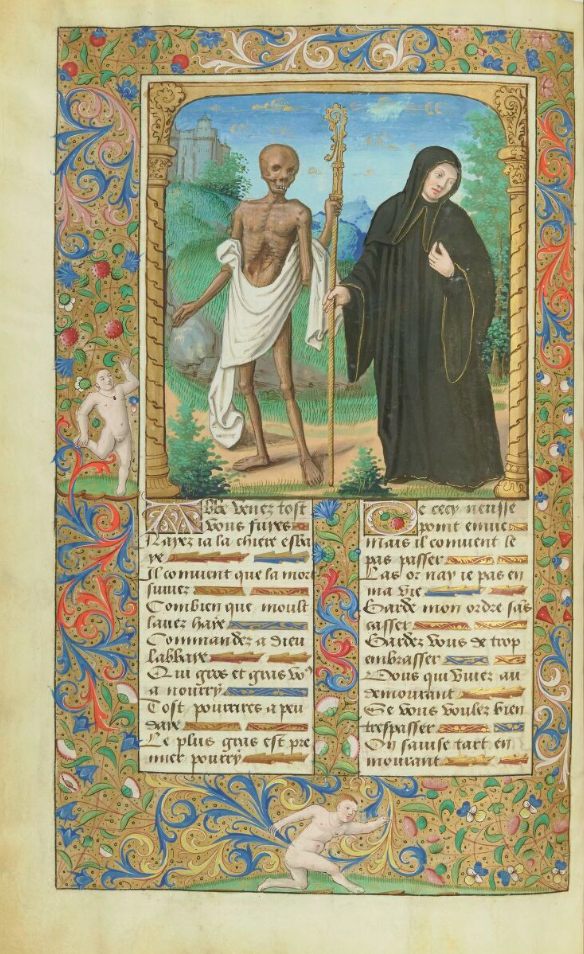 Abbe venez tost
vous fuyez
Nayez ia la chiere esba
ye
Il convient que la mort
suivez
Combien que moult
lavez haye
Commandez a dieu
labbaye
Qui gros et gras vo9
a nourry
Tost pourrires a peu
daye
Le plus gras est pre
mier pourry
De cecy neusse
point envie
mais il convient le
pas passer
Las or nay ie pas en
ma vie
Garde mon ordre sãs
casser
Gardez vous de trop
embrasser
Vous qui vivez au
demourant
Se vous voulez bien
trespasser
On savise tart en
mourant